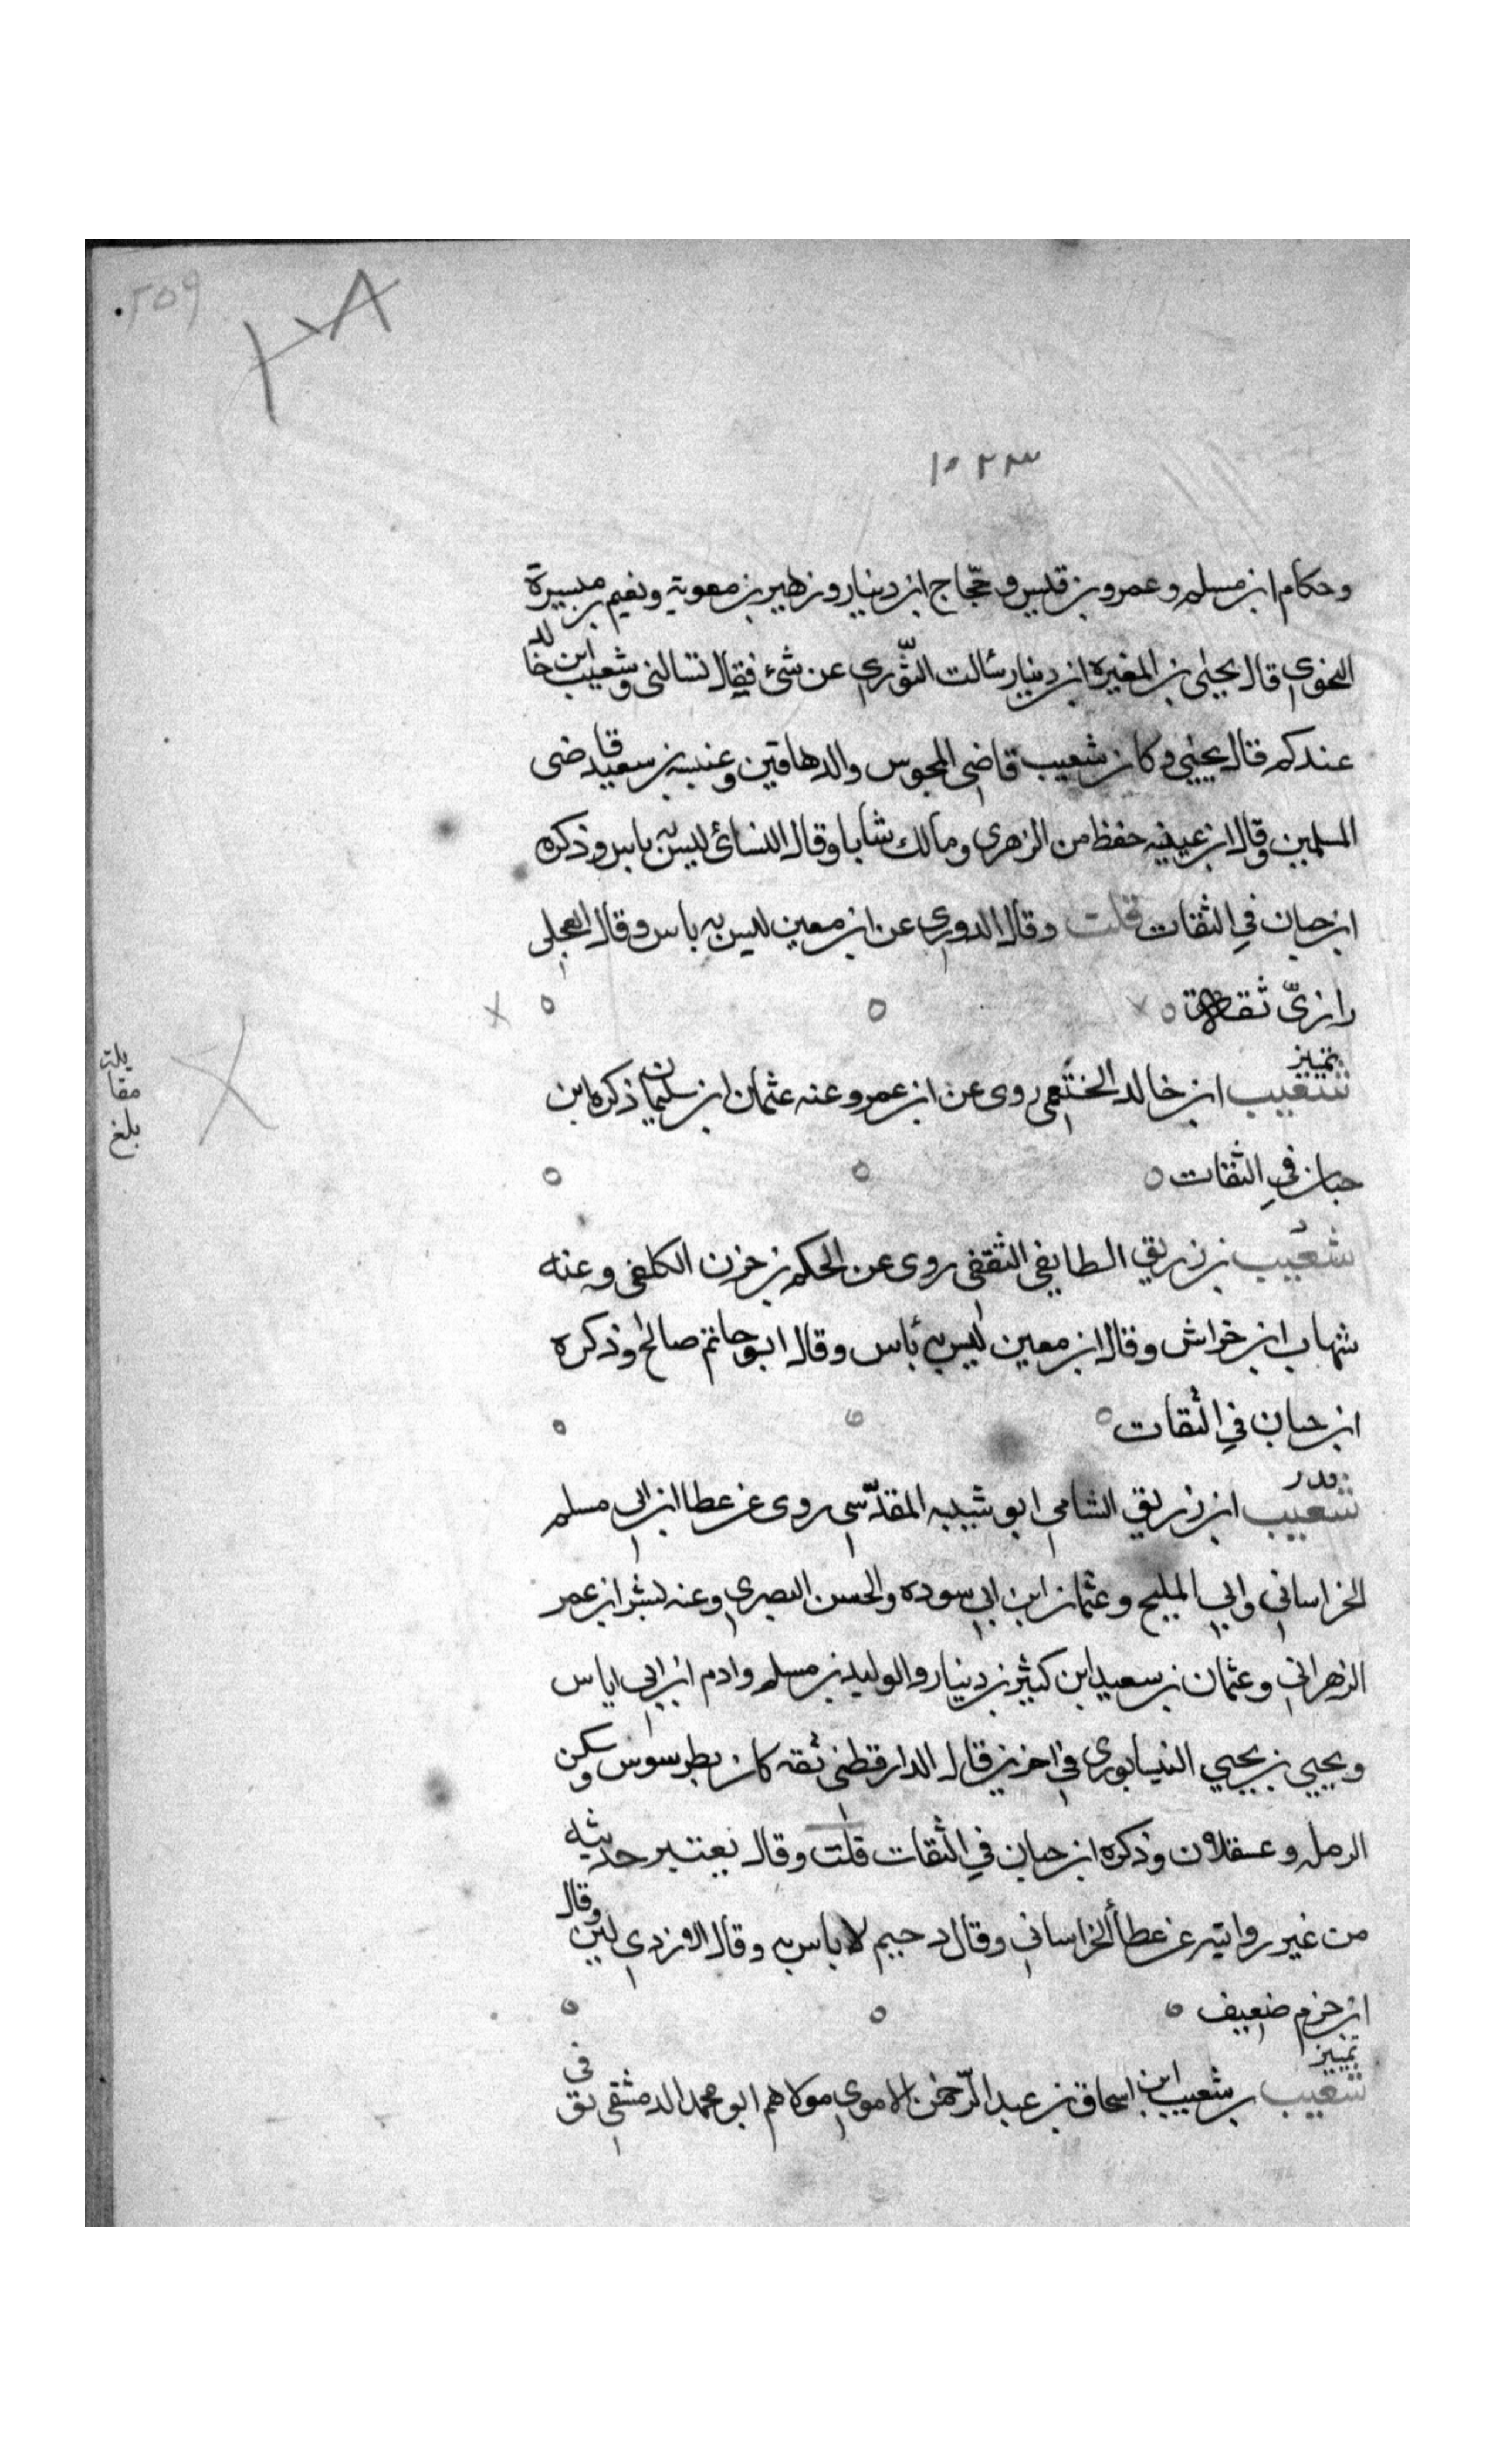 ٢٥٩
٢٨
١٥٢٢٣
وحكام ابن مسلم وعمرو بن قيس وحجّاج ابن دينار وزهير بن معوية ونعيم بن ميسرة
النحوي قال يحيى بن المغيرة ابن دينار سألت الثّوري عن شئ فقال تسالنى وشعيب ابن خالد
عندكم قال يحيى وكان شعيب قاضي المجوس والدهاقين وعنبسه بن سعيد قاضى
المسلمين وقال ابن عيينه حفظ من الزهري ومالك شابا وقال النسائ ليس به باس وذكره
ابن حبان في الثقات قلت وقال الدوري عن ابن معين ليس به باس وقال العجلى
رازىّ ثقة
تمييز
شعيب ابن خالد الخثعمى روى عن ابن عمر وعنه عثمان ابن سليمان ذكره ابن
حبان في الثقات
بلغ مقابلة
د
شعيب بن زريق الطايفي الثقفى روى عن الحكم بن حزن الكلفى وعنه
شهاب ابن خراش وقال ابن معين ليس به بأس وقال ابو حاتم صالح وذكره
ابن حبان في الثقات
شعيب ابن زريق الشامى ابو شيبه المقدّسى روى عن عطا ابن ابى مسلم
الخراسانى وابي المليح وعثمان ابن ابي سوده والحسن البصري وعنه بشر ابن عمر
الزهرانى وعثمان بن سعيد ابن كثير بن دينار والوليد بن مسلم وادم ابن ابي اياس
ويحيي بن يحيي النيسابوري في اخرين قال الدارقطنى ثقه كان بطرسوس وسكن
الرمله وعسقلان وذكره ابن حبان في الثقات قلت وقال يعتبر حديثه
من غير روايته عن عطأ الخراسانى وقال دحيم لا باس به وقال الازدي لين وقال
ابن حزم ضعيف
تمييز
شعيب بن شعيب ابن اسحاق بن عبد الرّحمن الاموى مولاهم ابو محمد الدمشقى تق فى